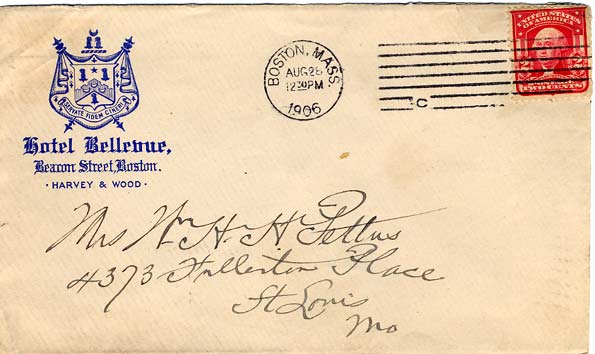 Hotel Bellevue,
Beacon Street, Boston.
· HARVEY & WOOD ·
BOSTON, MASS.
AUG 26
12 30 PM
1906
C
UNITED STATES
OF AMERICA
TWO CENTS
Mrs Wm H. H. Pettus
4373 Fullerton Place
St Louis
Mo